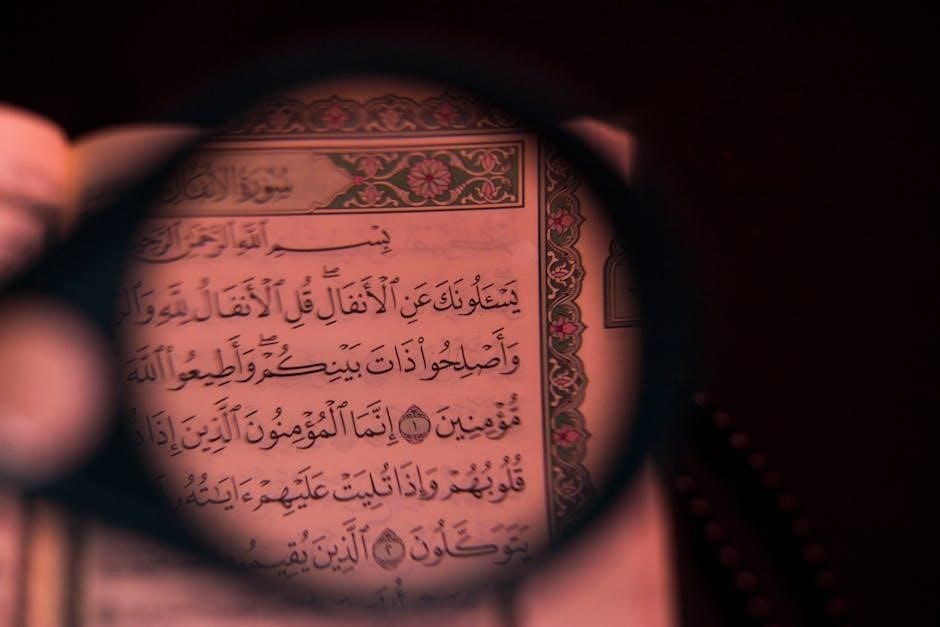 سُورَةُ الأَنفَالِ
بِسْمِ ٱللَّهِ ٱلرَّحْمَٰنِ ٱلرَّحِيمِ
يَسْـَٔلُونَكَ عَنِ ٱلْأَنفَالِ ۖ قُلِ ٱلْأَنفَالُ لِلَّهِ
وَأَصْلِحُوا۟ ذَاتَ بَيْنِكُمْ ۖ وَأَطِيعُوا۟ ٱللَّهَ
مُّؤْمِنِينَ ١ إِنَّمَا ٱلْمُؤْمِنُونَ ٱلَّذِينَ إِذَا
قُلُوبُهُمْ وَإِذَا تُلِيَتْ عَلَيْهِمْ ءَايَٰتُهُۥ
يَتَوَكَّلُونَ ٢ ٱلَّذِينَ